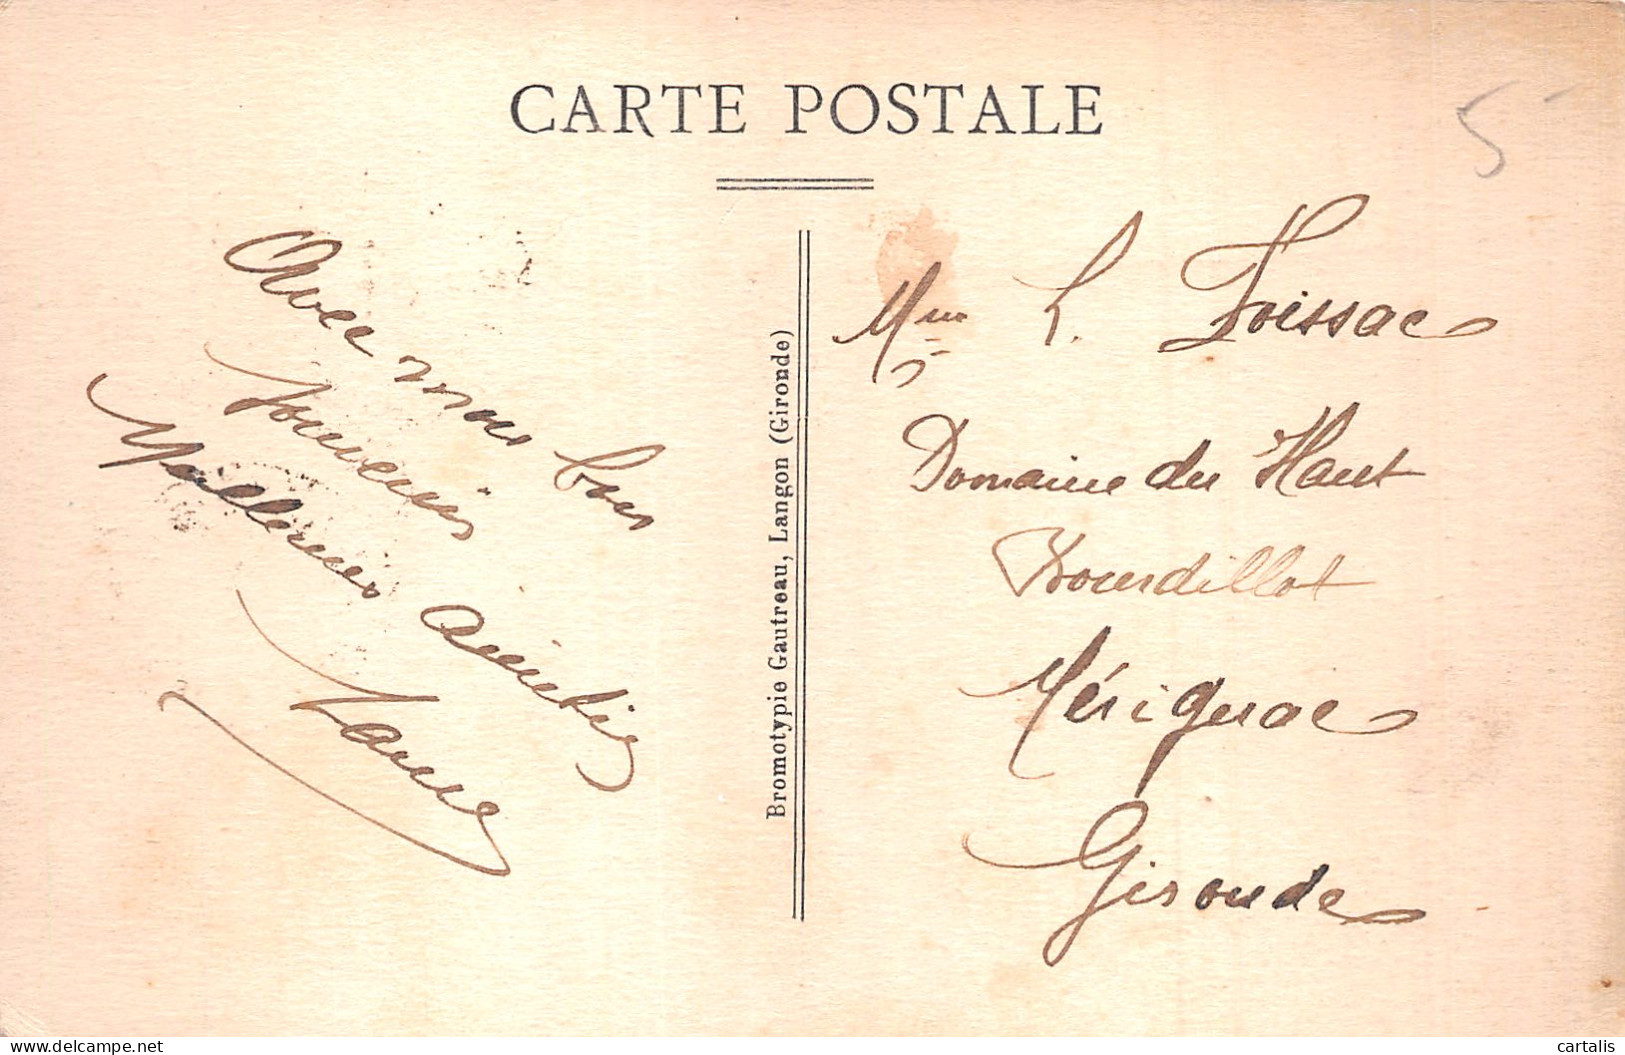 CARTE POSTALE
5
Avec nos bons
souvenirs
Meilleures amitiés
Bromotypie Gautreau, Langon (Gironde)
Mme L. Foissac
Domaine du Haut
Bourdillot
Mérignac
Gironde
delcampe.net
cartalis